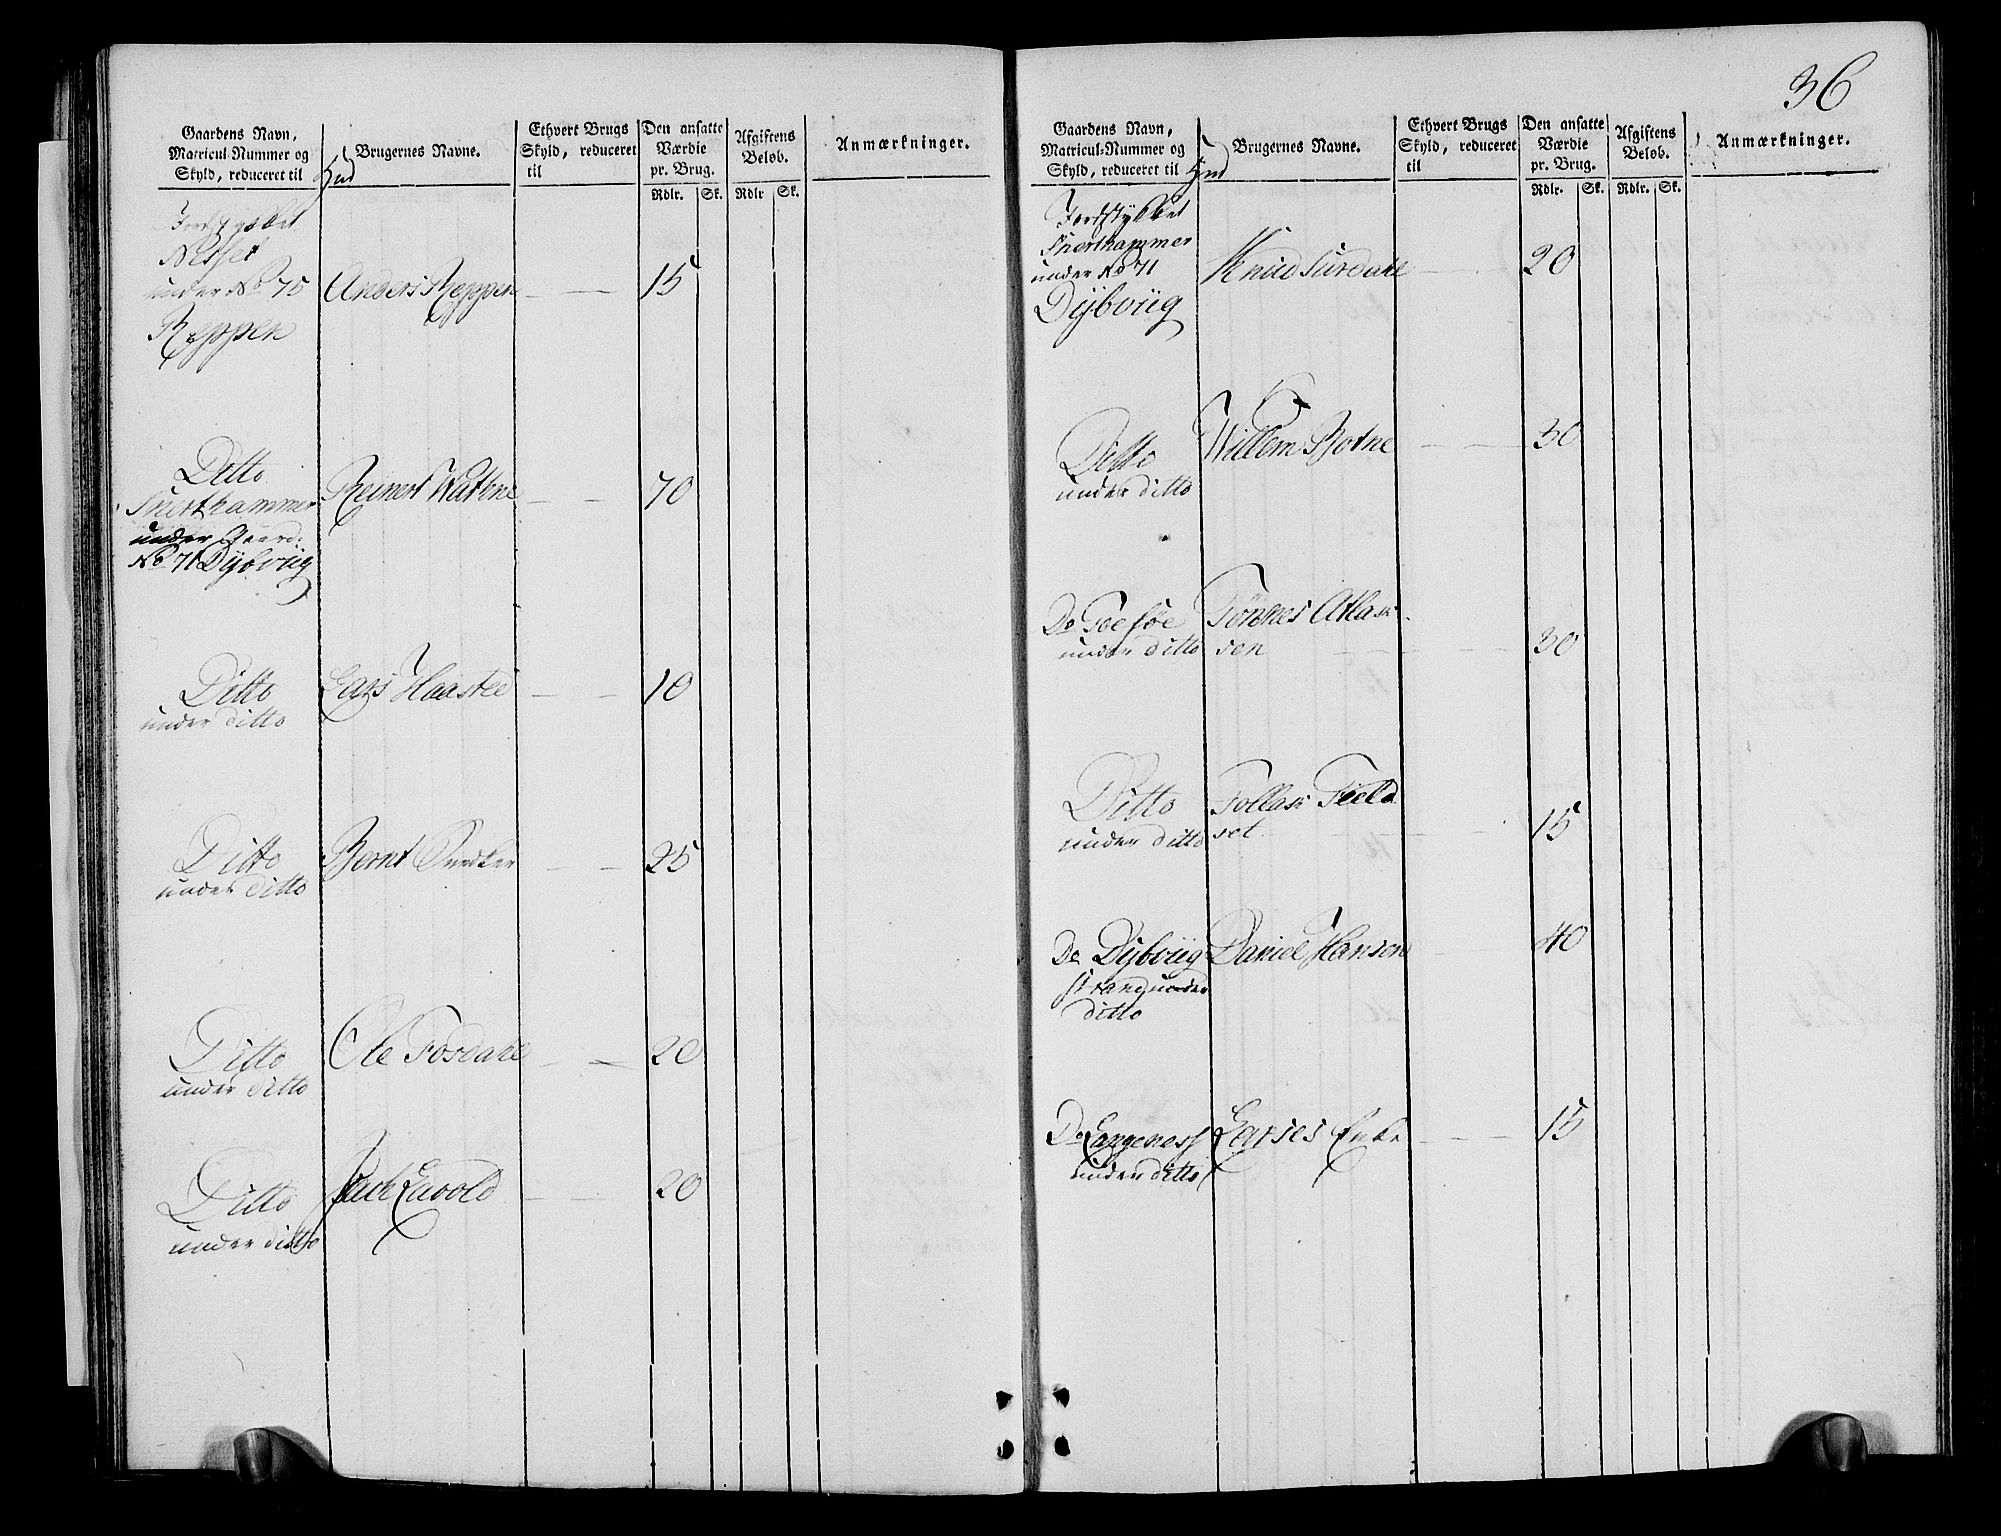 Gaardens Navn,
Matricul-Nummer og
Skyld, reduceret til
Hud
Brugernes Navne.
Ethvert Brugs
Skyld, reduceret
til
Den ansatte
Værdie
pr. Brug.
Rdlr. Sk.
Afgiftens
Beløb.
Rdlr Sk.
Anmærkninger.
Jordstykket
Nesset
under No 75 Anders Reppen 15
Reppen
Ditto
Snerthammer Reinert Wathne 70
under Gaard:
No 71 Dybviig
Ditto Lars Haastee 10
under ditto
Ditto Bernt 25
under ditto
Ditto Ole Fosdahl 20
under ditto
Ditto Lavold 20
under ditto
36
Gaardens Navn,
Matricul-Nummer og
Skyld, reduceret til
Hud
Brugernes Navne.
Ethvert Brugs
Skyld, reduceret
til
Den ansatte
Værdie
pr. Brug.
Rdlr. Sk.
Afgiftens
Beløb.
Rdlr. Sk.
Anmærkninger.
Jordstykket
Snerthammer
under No 71 Knud Surdahl 20
Dybviig
Ditto Willem Botne 30
under ditto
Do Tønnes Atlak
under ditto sen 30
Ditto Tollak Field
under ditto set 15
Do Dybviig Daniel Hansen 40
strand under
ditto
Do Langeness 15
under ditto